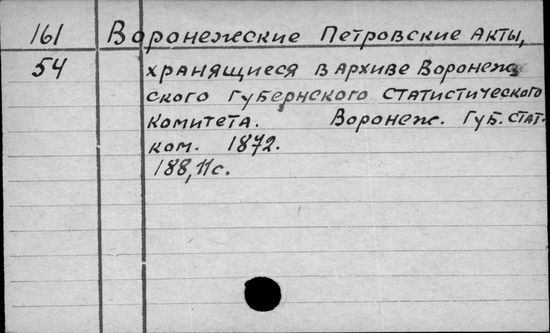 161 Воронежские Петровские Акты,
54 хранящиеся в Архиве Воронеж
ского Губернского Статистического
Комитета. Воронеж. Губ. Стат.
ком. 1872.
188, 11 с.